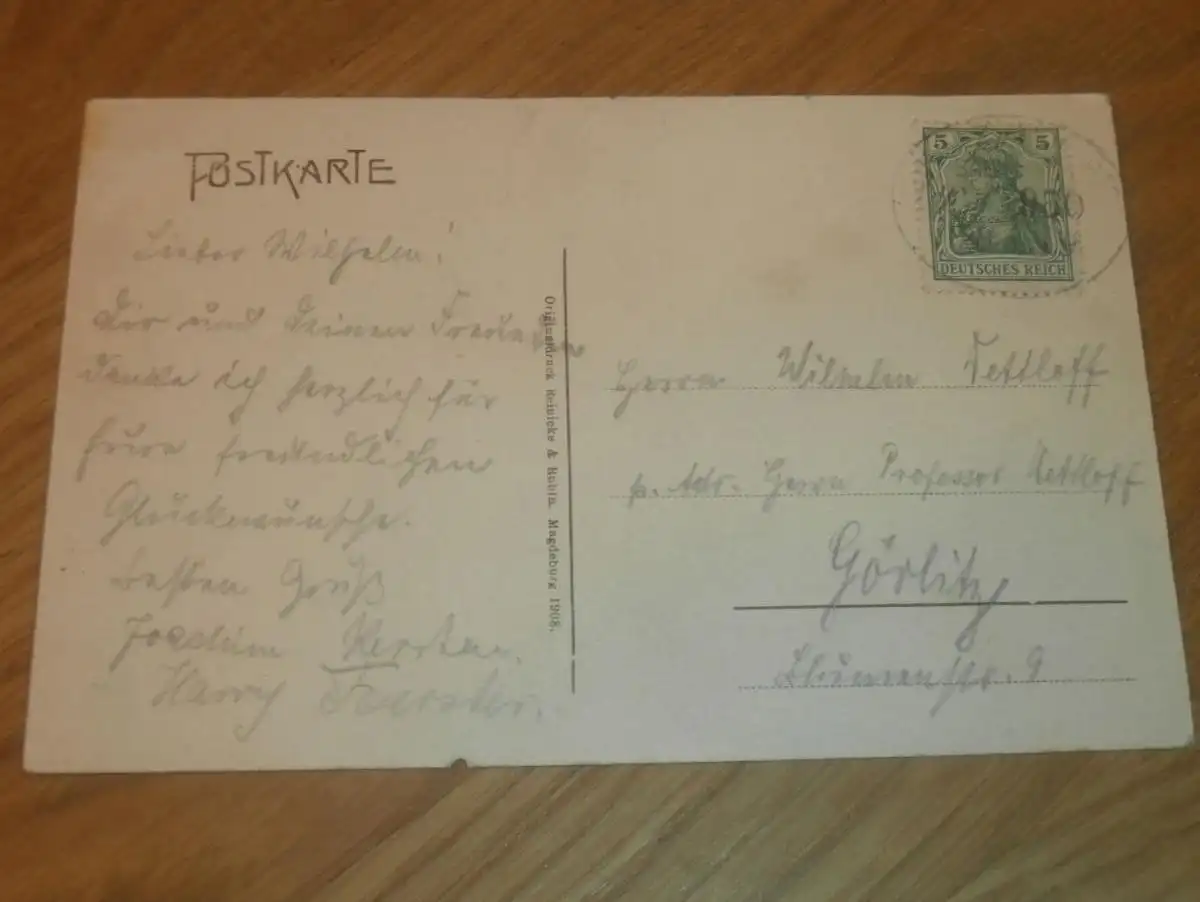 POSTKARTE
Lieber Wilhelm!
Dir und Deinen
danke ich herzlich für
Eure freundlichen
Glückwünsche.
Besten Gruß
Joachim
Harry
Originaldruck Reinicke & Rubin, Magdeburg 1908.
5 5
DEUTSCHES REICH
Herrn Wilhelm Tettloff
p. Adr. Herrn Professor Tettloff
Görlitz
Blumenstr. 9